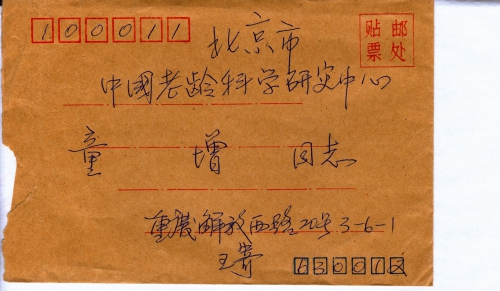 100011
北京市
贴邮
票处
中國老龄科学研究中心
童增同志
重庆解放西路20号3-6-1
王寄
630012